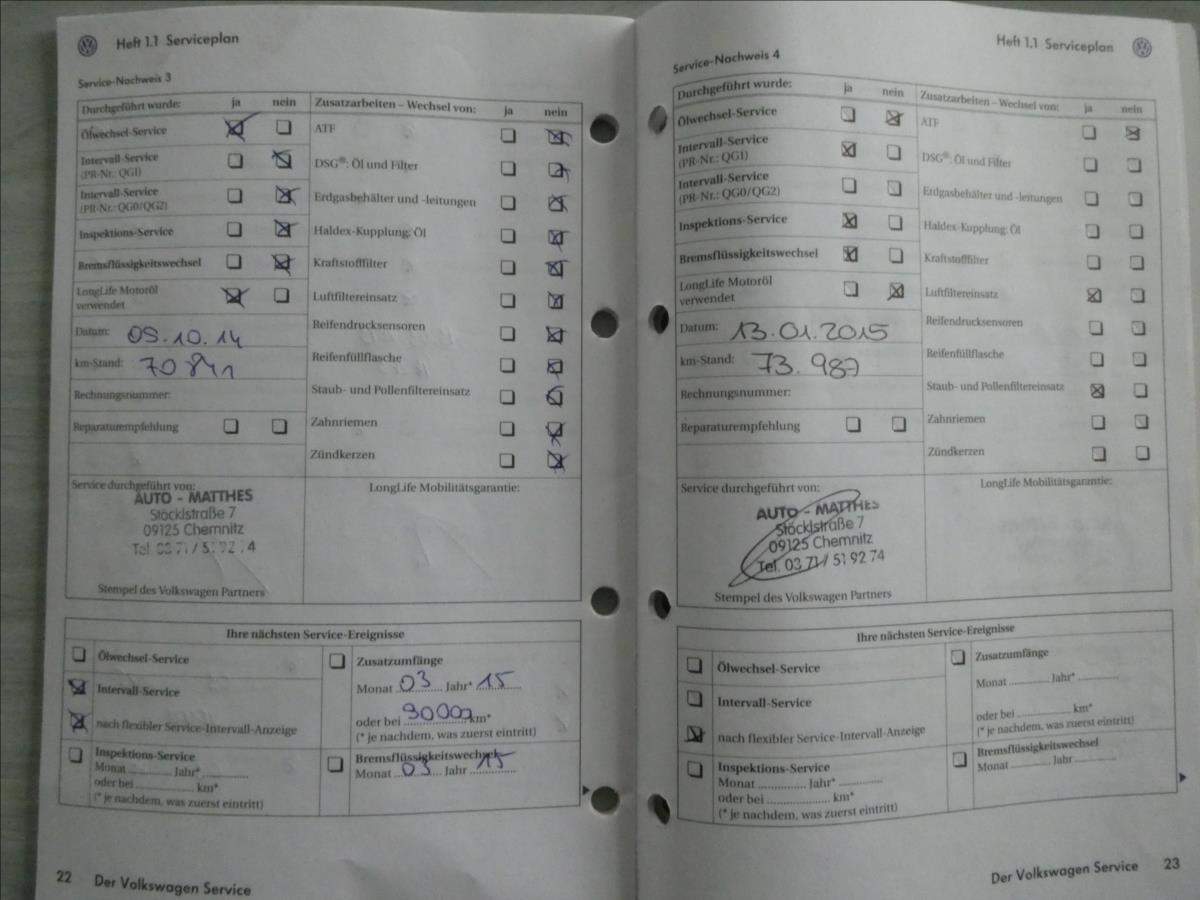 Heft 1.1 Serviceplan
Service-Nachweis 3
Durchgeführt wurde: ja nein
Ölwechsel-Service
Intervall-Service
(PR-Nr.: QG1)
Intervall-Service
(PR-Nr.: QG0/QG2)
Inspektions-Service
Bremsflüssigkeitswechsel
LongLife Motoröl
verwendet
Datum: 09.10.14
km-Stand: 70841
Rechnungsnummer:
Reparaturempfehlung
Zusatzarbeiten – Wechsel von: ja nein
ATF
DSG®: Öl und Filter
Erdgasbehälter und -leitungen
Haldex-Kupplung: Öl
Kraftstofffilter
Luftfiltereinsatz
Reifendrucksensoren
Reifenfüllflasche
Staub- und Pollenfiltereinsatz
Zahnriemen
Zündkerzen
Service durchgeführt von:
AUTO - MATTHES
Stöcklstraße 7
09125 Chemnitz
Tel. 03 71 / 51 92 74
Stempel des Volkswagen Partners
LongLife Mobilitätsgarantie:
Ihre nächsten Service-Ereignisse
Ölwechsel-Service
Intervall-Service
nach flexibler Service-Intervall-Anzeige
Inspektions-Service
Monat ............ Jahr* ............
oder bei ............ km*
(* je nachdem, was zuerst eintritt)
Zusatzumfänge
Monat 03 Jahr* 15
oder bei 90000 km*
(* je nachdem, was zuerst eintritt)
Bremsflüssigkeitswechsel
Monat 03 Jahr 15
22 Der Volkswagen Service
Heft 1.1 Serviceplan
Service-Nachweis 4
Durchgeführt wurde: ja nein
Ölwechsel-Service
Intervall-Service
(PR-Nr.: QG1)
Intervall-Service
(PR-Nr.: QG0/QG2)
Inspektions-Service
Bremsflüssigkeitswechsel
LongLife Motoröl
verwendet
Datum: 13.01.2015
km-Stand: 73.987
Rechnungsnummer:
Reparaturempfehlung
Zusatzarbeiten – Wechsel von: ja nein
ATF
DSG®: Öl und Filter
Erdgasbehälter und -leitungen
Haldex-Kupplung: Öl
Kraftstofffilter
Luftfiltereinsatz
Reifendrucksensoren
Reifenfüllflasche
Staub- und Pollenfiltereinsatz
Zahnriemen
Zündkerzen
Service durchgeführt von:
AUTO - MATTHES
Stöcklstraße 7
09125 Chemnitz
Tel. 03 71 / 51 92 74
Stempel des Volkswagen Partners
LongLife Mobilitätsgarantie:
Ihre nächsten Service-Ereignisse
Ölwechsel-Service
Intervall-Service
nach flexibler Service-Intervall-Anzeige
Inspektions-Service
Monat ............ Jahr* ............
oder bei ............ km*
(* je nachdem, was zuerst eintritt)
Zusatzumfänge
Monat ............ Jahr* ............
oder bei ............ km*
(* je nachdem, was zuerst eintritt)
Bremsflüssigkeitswechsel
Monat ............ Jahr ............
Der Volkswagen Service 23